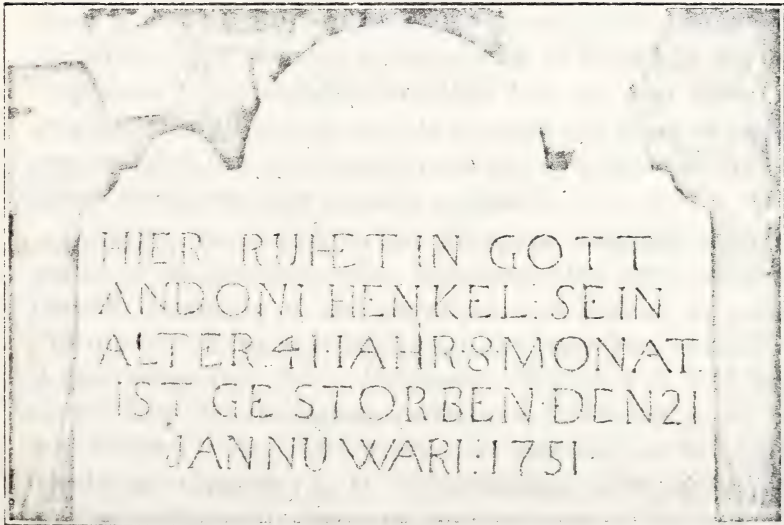 HIER RUHET IN GOTT
ANDONI HENKEL: SEIN
ALTER·41·IAHR·8·MONAT
IST GE STORBEN·DEN 21
JANNUWARI:1751·